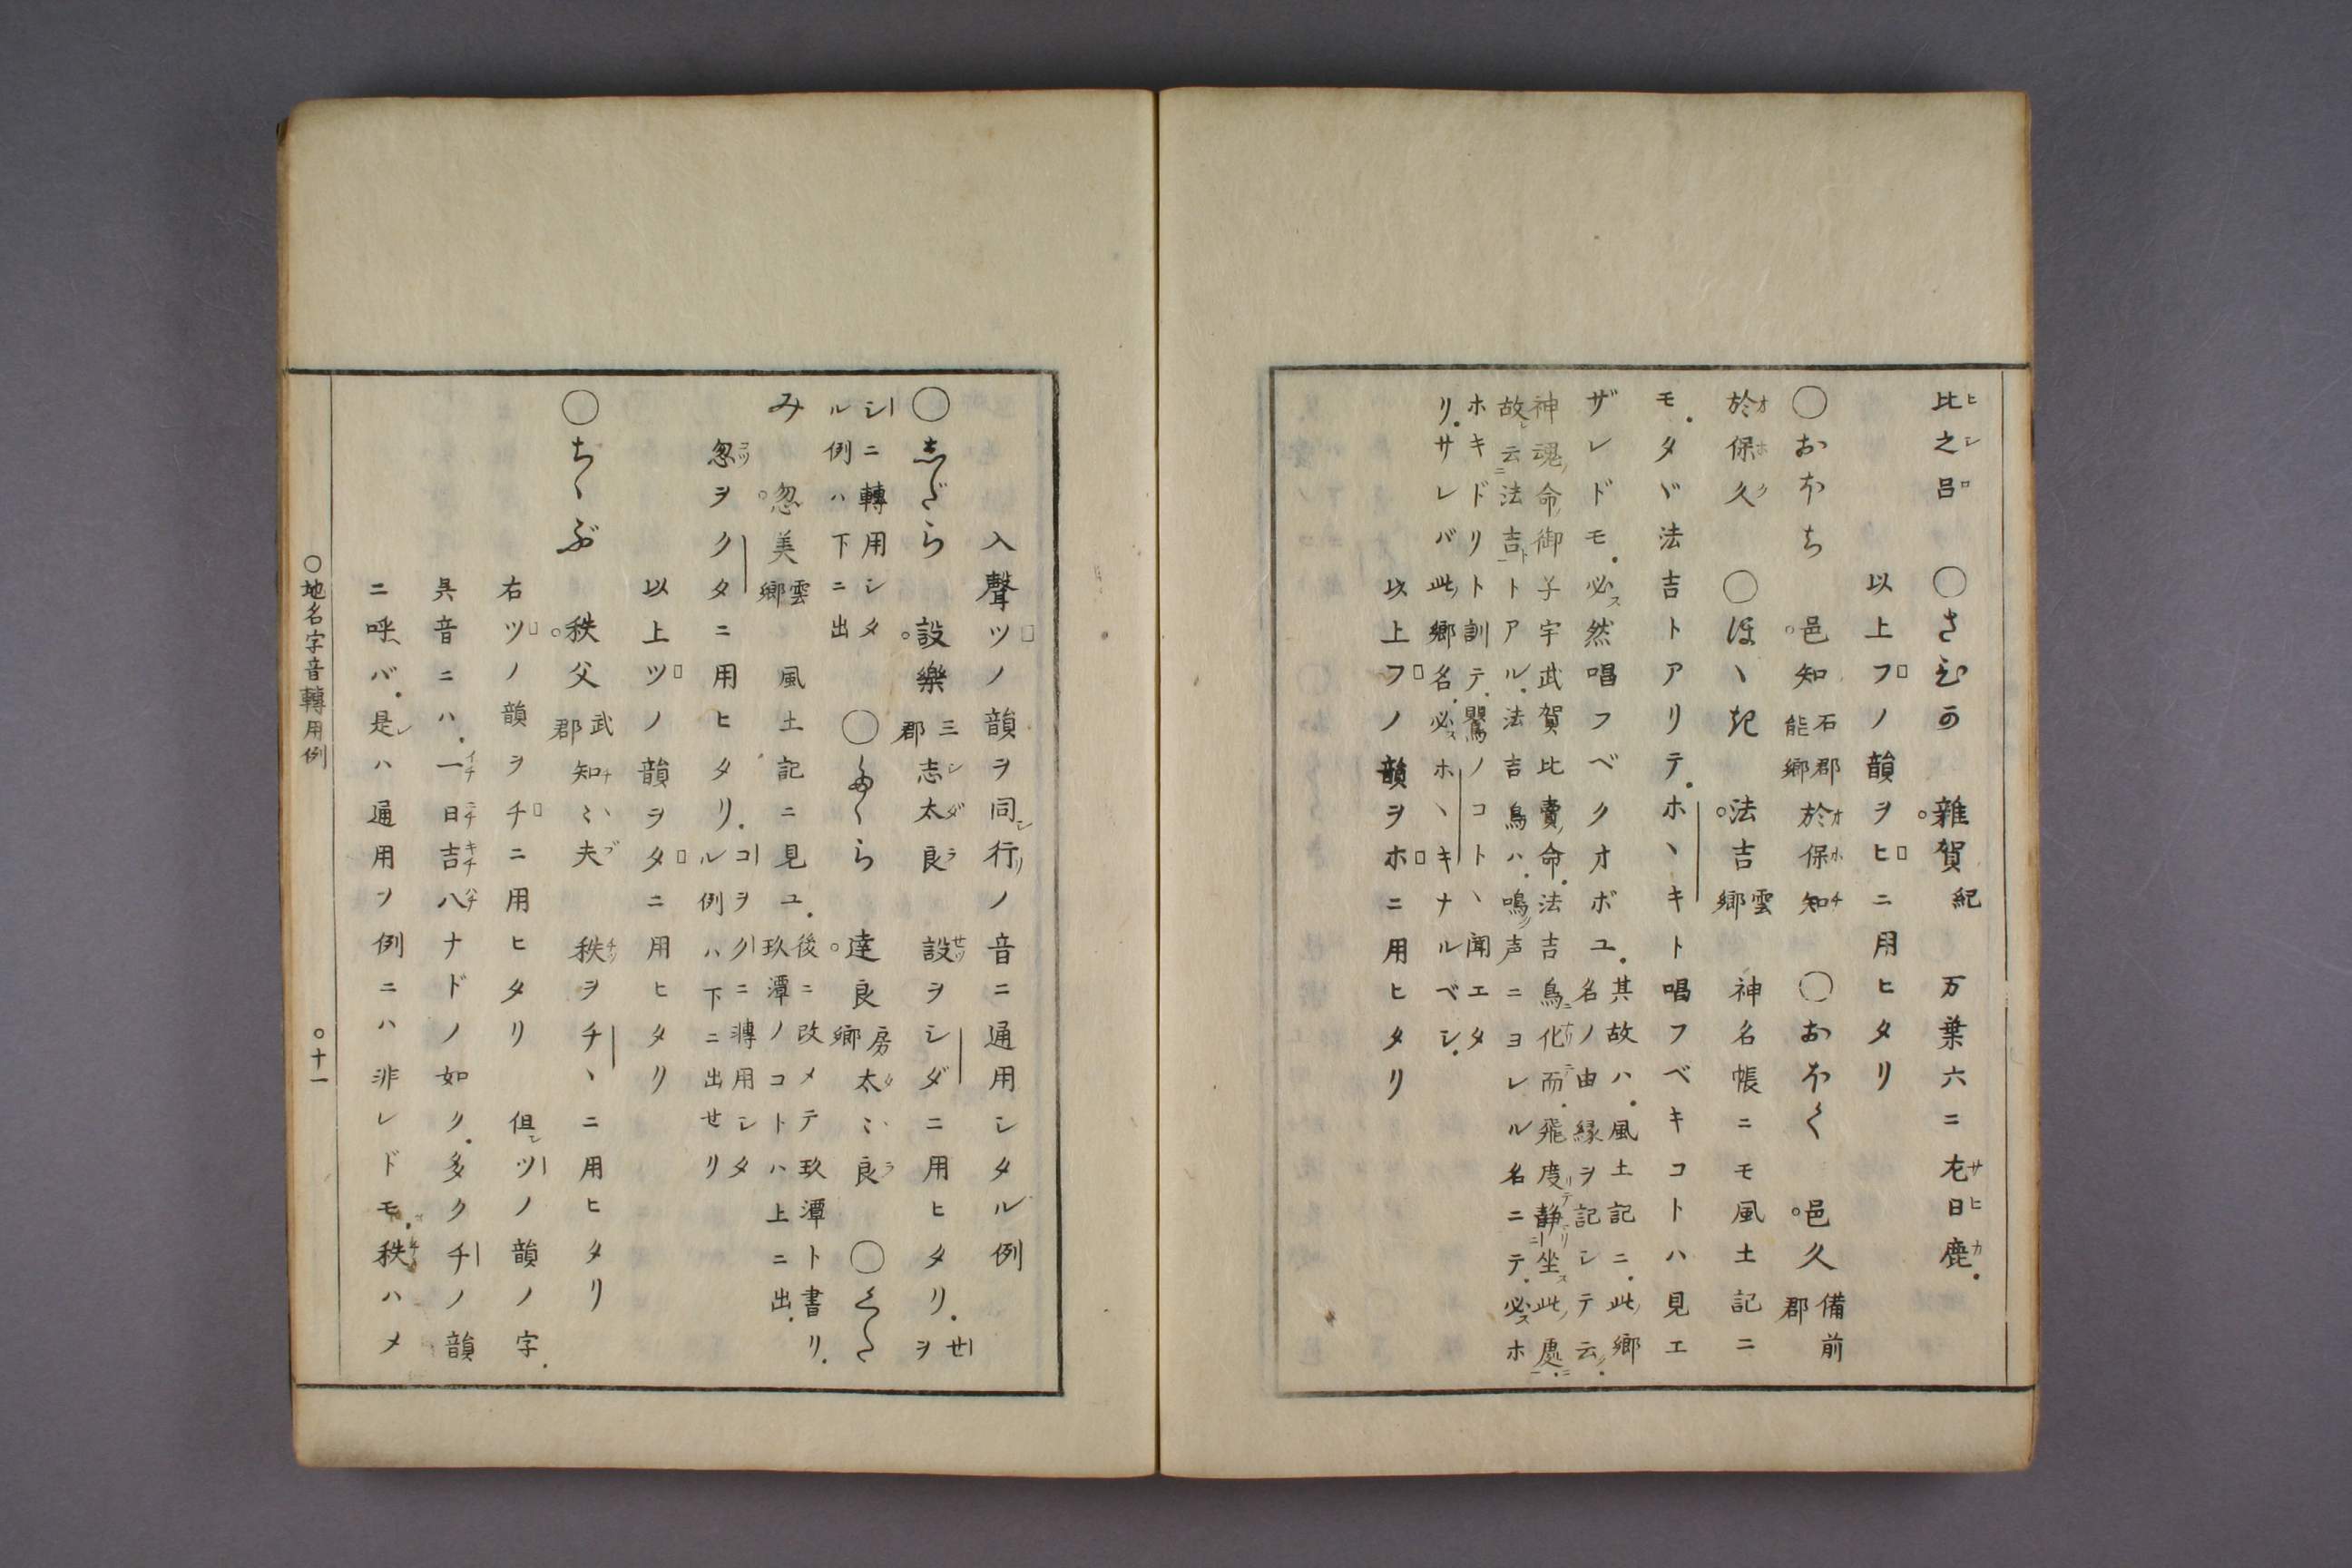 比之呂　〇さひか　雜賀紀　万葉六ニ左日鹿。
以上フノ韻ヲヒニ用ヒタリ
〇おほち　邑知石郡能郷於保知　〇おほく　邑久備前郡
於保久　〇ほゝき　法吉雲郷　神名帳ニモ風土記ニ
モ。タヾ法吉トアリテ。ホヽキト唱フベキコトハ見エ
ザレドモ。必ス然唱フベクオボユ。其故ハ。風土記ニ。此ノ郷
名ノ由縁ヲ記シテ云ク。
神魂ノ命ノ御子宇武賀比賣ノ命。法吉鳥ニ化リ而。飛度リテ静リ坐ス此ノ處ニ。
故レ云ニ法吉トトアル。法吉鳥ハ。鳴ク声ニヨレル名ニテ。必スホ
ホキドリト訓テ。鸎ノコトヽ聞エタ
リ。サレバ此ノ郷名。必スホヽキナルベシ。
以上フノ韻ヲホニ用ヒタリ
入聲ツノ韻ヲ同シ行リノ音ニ通用シタル例
〇志だら　設樂三郡志太良　設ヲシダニ用ヒタリ。せヲ
シニ轉用シタ
ル例ハ下ニ出　〇たゝら　達良房郷太々良　〇くた
み　忽美雲郷　風土記ニ見ユ。後ニ改メテ玖潭ト書リ。
玖潭ノコトハ上ニ出。
忽ヲクタニ用ヒタリ。コヲクニ轉用シタ
ル例ハ下ニ出せリ
以上ツノ韻ヲタニ用ヒタリ
〇ちゝぶ　秩父武郡知々夫　秩ヲチヽニ用ヒタリ
右ツノ韻ヲチニ用ヒタリ　但シツノ韻ノ字。
呉音ニハ。一日吉八ナドノ如ク。多クチノ韻
ニ呼ヘバ。是レハ通用ノ例ニハ非レドモ。秩ハメ
〇地名字音轉用例　〇十一